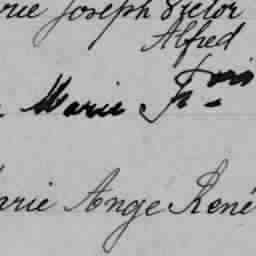 rie Joseph Victor
Alfred
Marie Fr.ois
arie Ange René